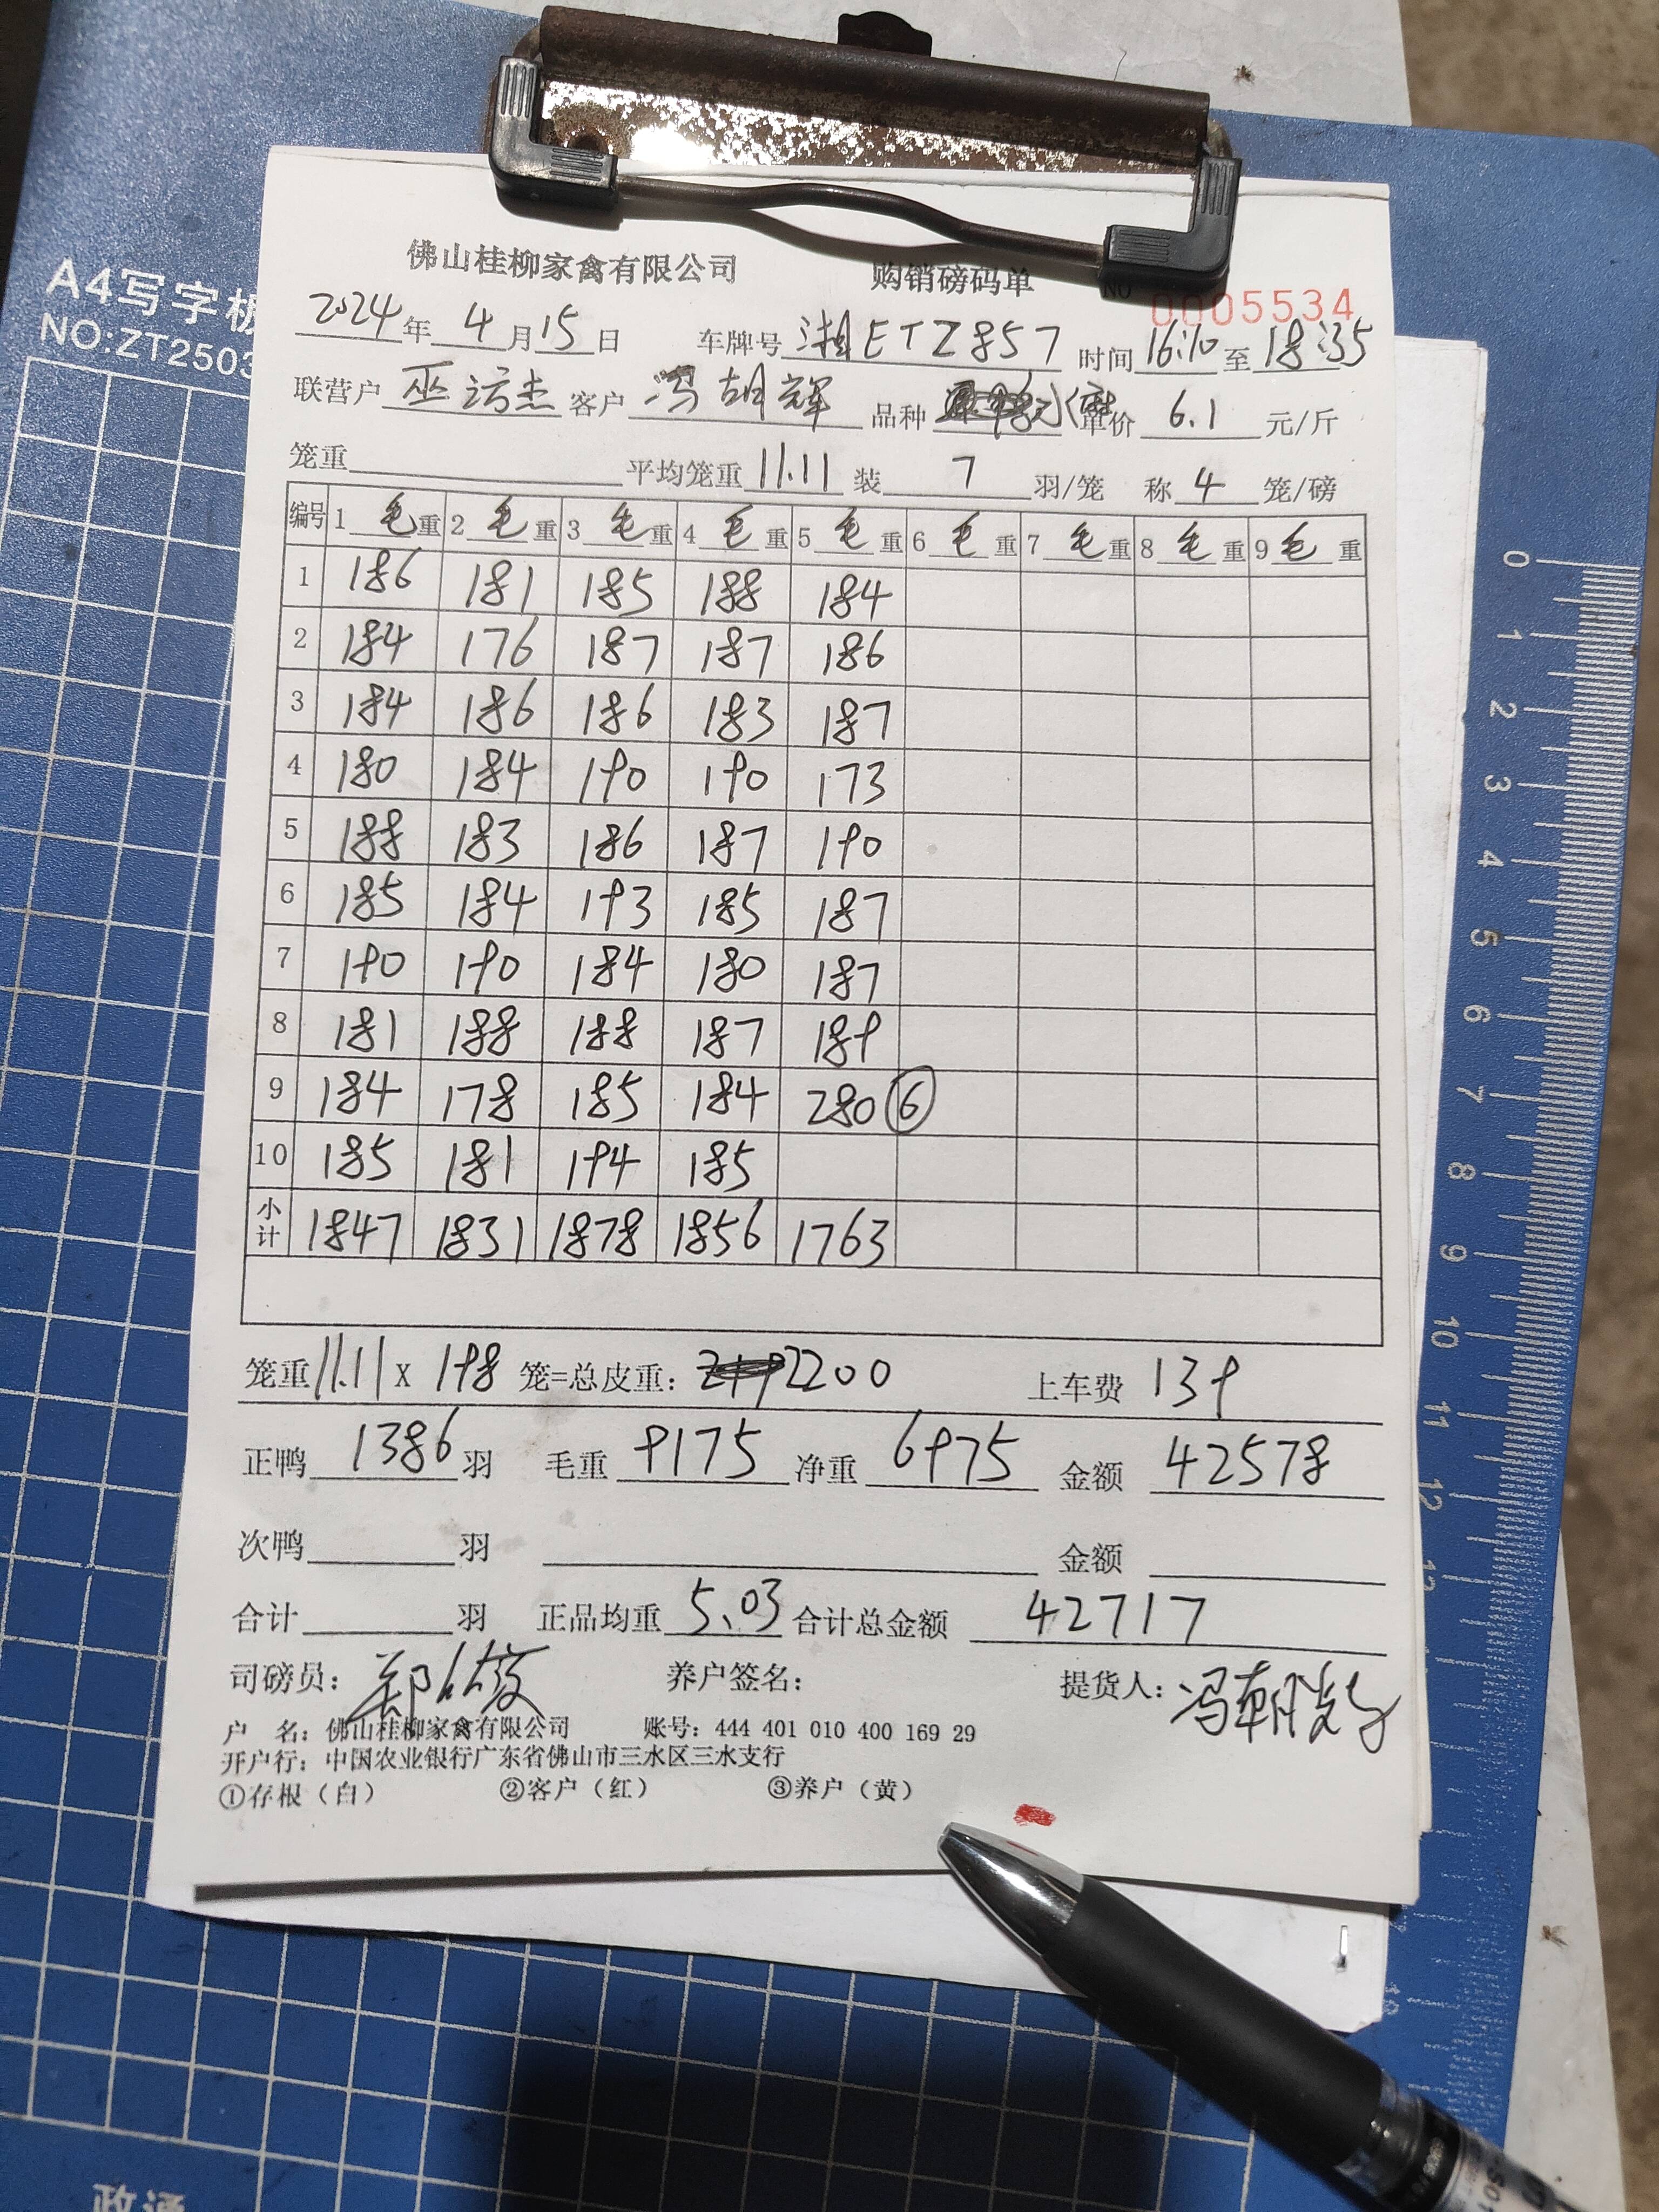 A4写字板
NO:ZT2503
佛山桂柳家禽有限公司 购销磅码单 NO 0005534
2024年 4月15日 车牌号 湘ETZ857 时间 16:10 至 18:35
联营户 巫 杰 客户 冯胡辉 品种 单价 6.1 元/斤
笼重 平均笼重 11.11 装 7 羽/笼 称 4 笼/磅
编号 1 毛重 2 毛重 3 毛重 4 毛重 5 毛重 6 毛重 7 毛重 8 毛重 9 毛重
1 186 181 185 188 184
2 184 176 187 187 186
3 184 186 186 183 187
4 180 184 190 190 173
5 188 183 186 187 190
6 185 184 193 185 187
7 190 190 184 180 187
8 181 188 188 187 189
9 184 178 185 184 280 ⑥
10 185 181 194 185
小计 1847 1831 1878 1856 1763
笼重 11.11 X 198 笼=总皮重: 2200 上车费 139
正鸭 1386 羽 毛重 9175 净重 6975 金额 42578
次鸭 羽 金额
合计 羽 正品均重 5.03 合计总金额 42717
司磅员: 郑 养户签名: 提货人: 冯
户 名: 佛山桂柳家禽有限公司 账号: 444 401 010 400 169 29
开户行: 中国农业银行广东省佛山市三水区三水支行
①存根(白) ②客户(红) ③养户(黄)
0
1
2
3
4
5
6
7
8
9
10
11
12
13
政通